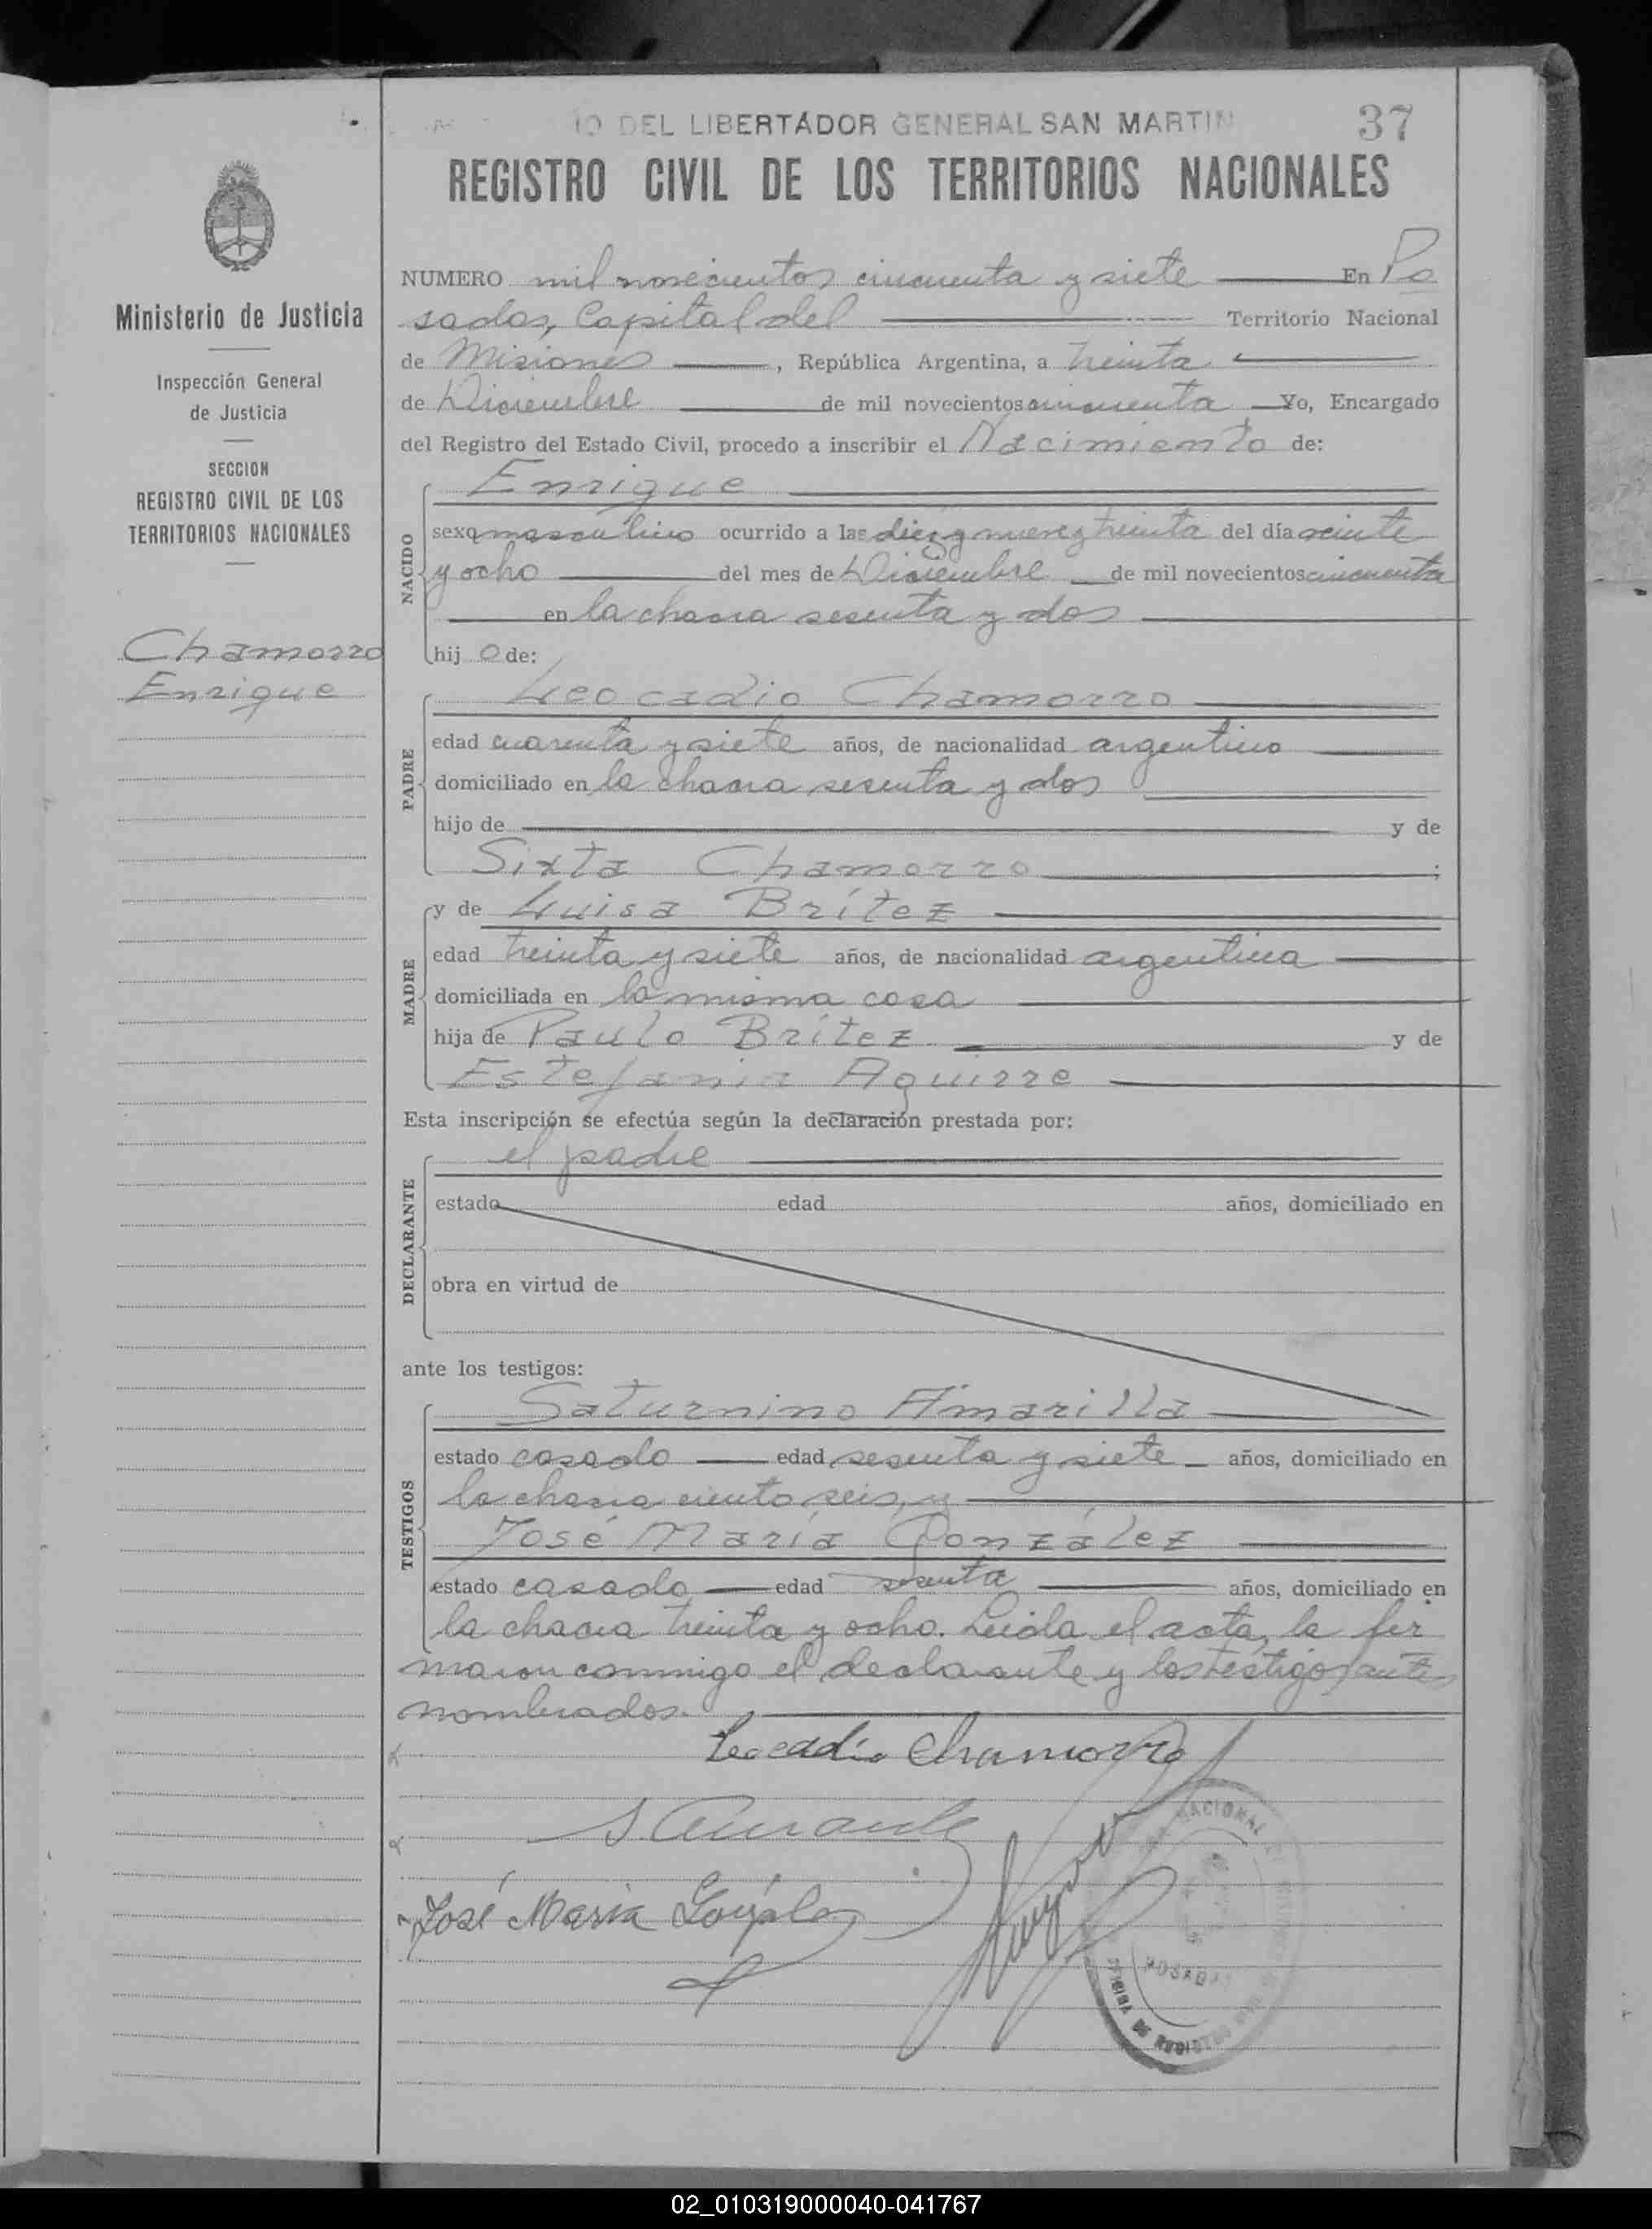 IO DEL LIBERTADOR GENERAL SAN MARTIN
37
REGISTRO CIVIL DE LOS TERRITORIOS NACIONALES
Ministerio de Justicia
Inspección General
de Justicia
SECCION
REGISTRO CIVIL DE LOS
TERRITORIOS NACIONALES
Chamorro
Enrique
NUMERO mil novecientos cincuenta y siete En Po
sadas, Capital del Territorio Nacional
de Misiones, República Argentina, a treinta
de Diciembre de mil novecientos cincuenta Yo, Encargado
del Registro del Estado Civil, procedo a inscribir el Nacimiento de:
NACIDO
Enrique
sexo masculino ocurrido a las diez y nueve y treinta del día veinte
y ocho del mes de Diciembre de mil novecientos cincuenta
en la chacra sesenta y dos
hijo de:
PADRE
Leocadio Chamorro
edad cuarenta y siete años, de nacionalidad argentino
domiciliado en la chacra sesenta y dos
hijo de y de
Sixta Chamorro;
MADRE
y de Luisa Brítez
edad treinta y siete años, de nacionalidad argentina
domiciliada en la misma casa
hija de Paulo Brítez y de
Estefania Aguirre
Esta inscripción se efectúa según la declaración prestada por:
DECLARANTE
el padre
estado edad años, domiciliado en
obra en virtud de
ante los testigos:
TESTIGOS
Saturnino Amarilla
estado casado edad sesenta y siete años, domiciliado en
la chacra ciento seis, y
José María González
estado casado edad sesenta años, domiciliado en
la chacra treinta y ocho. Leida el acta, la fir
maron conmigo el declarante y los testigos antes
nombrados.
Leocadio Chamorro
José Maria González
NACIONAL
POSADAS
OFICINA DE REGISTRO CIVIL
02_010319000040-041767